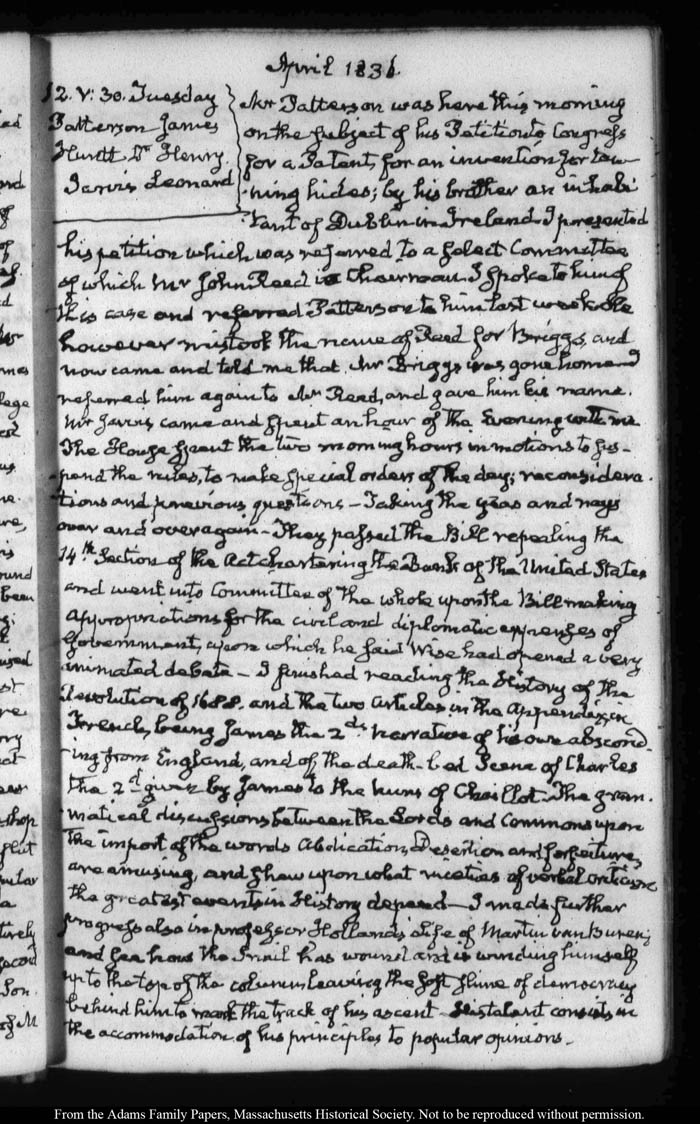 April 1836.
12. V: 30. Tuesday
Patterson James
Huntt Dr. Henry.
Jarvis Leonard
Mr Patterson was here this morning
on the subject of his Petition to Congress
for a Patent, for an invention for tan-
ning hides; by his brother an inhabi-
tant of Dublin in Ireland. I presented
his petition which was referred to a select Committee
of which Mr John Reed is Chairman. I spoke to him of
this case and referred Patterson to him last week. He
however mistook the name of Reed for Briggs, and
now came and told me that Mr Briggs was gone home. I
referred him again to Mr Reed, and gave him his name.
Mr Jarvis came and spent an hour of the Evening with me.
The House spent the two morning hours in motions to sus-
pend the rules, to make special orders of the day; reconsidera-
tions and previous questions—Taking the yeas and nays
over and over again—They passed the Bill repealing the
14th Section of the Act chartering the Bank of the United States
and went into Committee of the whole upon the Bill making
appropriations for the civil and diplomatic expenses of
Government, upon which he said Wise had opened a very
animated debate—I finished reading the History of the
Revolution of 1688. and the two Articles in the Appendix in
French, being James the 2d's narrative of his own abscond-
ing from England, and of the death-bed Scene of Charles
the 2d given by James to the nuns of Chaillot. The gram-
matical discussions between the Lords and Commons upon
the import of the words Abdication, Desertion and forfeiture,
are amusing, and shew upon what niceties of verbal criticism
the greatest events in History depend—I made further
progress also in professor Holland's Life of Martin van Buren;
and see how the Snail has wound and is winding himself
up to the top of the column leaving the soft slime of democracy
behind him to mark the track of his ascent—His talent consists in
the accommodation of his principles to popular opinions—
From the Adams Family Papers, Massachusetts Historical Society. Not to be reproduced without permission.